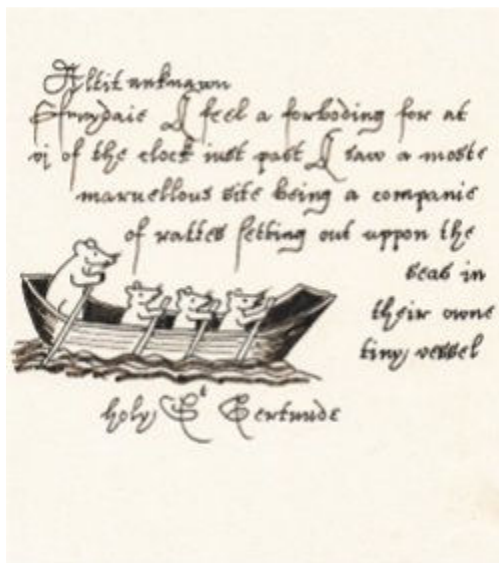 Altit unknawn
ffrydaie I feel a forboding for at
vj of the clock iust past I saw a moste
maruellous site being a companie
of rattes setting out uppon the
seas in
their owne
tiny vessel
holy St Gertrude